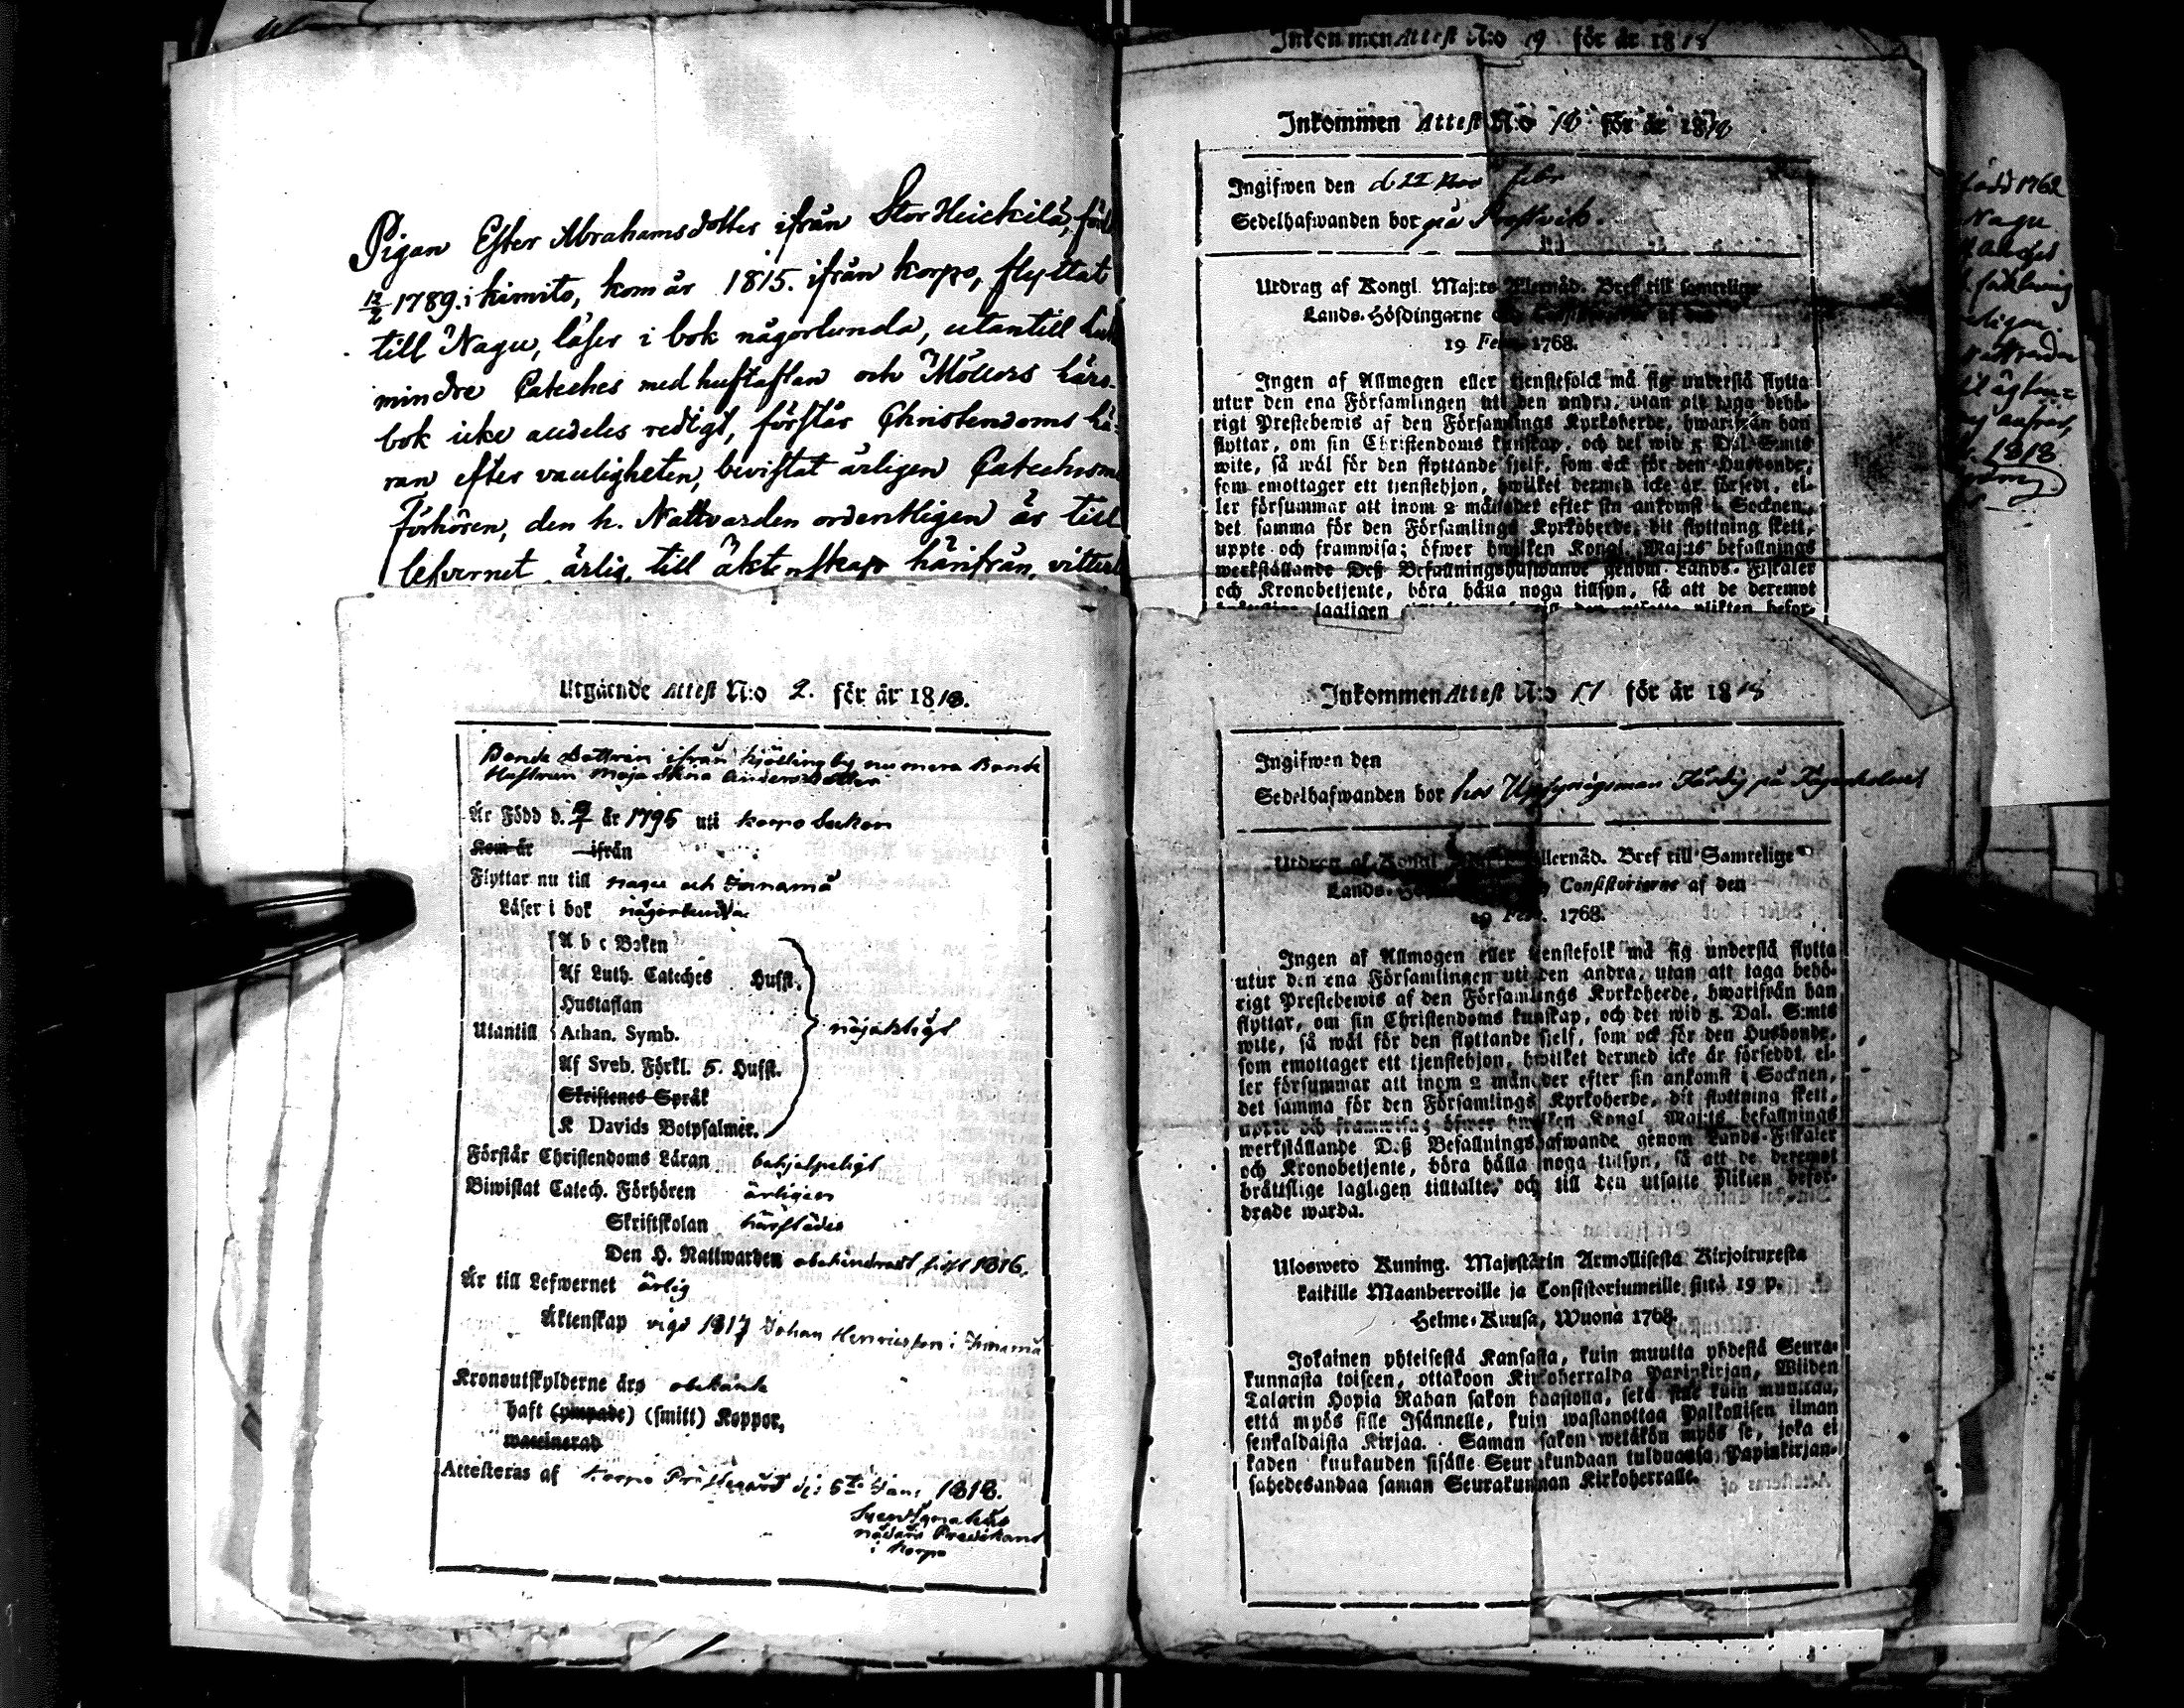 Pigan Ester Abrahamsdotter ifrån Stor Heickilä, föd
12/2 1789. i kimito, kom år 1815. ifrån korpo, flyttat
till Nagu, läser i bok någorlunda, utantill
mindre Cateches med hustaflan och Möllers läro-
bok icke aldeles redigt, förstår Christendoms lä-
ran efter vanligheten, bevistat årligen Catechism
Förhören, den h. Nattvarden ordentligen är till
lefvernet ärlig, till äktenskap härifrån, vitterl
Utgående Attest N:o 2. för år 1818.
Bonde Dottren ifrån kjällingby nu mera Bonde
Hustrun Maja Stina Andersdotter
Är Född d. år 1795 uti korpo Socken
Kom år ifrån
Flyttar nu till Nagu och
Läser i bok någorlunda
A b c Boken
Af Luth. Cateches Hufst.
Hustaflan
Utantill Athan. Symb. nöjaktigt
Af Sveb. Förkl. 5. Hufst.
Skriftenes Språk
K Davids Botpsalmer.
Förstår Christendoms Läran behjelpeligt
Biwistat Catech. Förhören årligen
Skriftskolan härstädes
Den H. Nattwarden obehindradt sist 1816.
Är till Lefwernet ärlig
Äktenskap vigd 1817 Johan Henricsson i
Kronoutskylderne äro obekante
haft (ympade) (smitt) Koppor,
waccinerad
Attesteras af Korpo Prästegård d: 6te Jan. 1818.
nådårs Predikant
i Korpo
Inkommen Attest N:o 19 för år 1818
Inkommen Attest N:o 18 för år 1818
Ingifwen den d. 22 Febr
Sedelhafwanden bor på
Utdrag af Kongl. Maj:ts Allernåd. Bref till samtelige
Lands-Höfdingarne
19 Febr. 1768.
Ingen af Allmogen eller tjenstefolck må sig understå flytta
utur den ena Församlingen uti den andra, utan att taga behö-
rigt Prestebewis af den Församlings Kyrkoherde, hwarifrån han
flyttar, om sin Christendoms kunskap, och det wid 5 Dal. S:mts
wite, så wäl för den flyttande sjelf, som ock för den Husbonde,
som emottager ett tjenstehjon, hwilket dermed icke är försedt, el-
ler försummar att inom 2 månader efter sin ankomst i Socknen,
det samma för den Församlings Kyrkoherde, dit flyttning skett,
uppte och framwisa; öfwer hwilken Kongl. Maj:ts befallnings
werkställande Deß Befallningshafwande genom Lands-Fiskaler
och Kronobetjente, böra hålla noga tillsyn, så att de deremot
lagligen
Inkommen Attest N:o 17 för år 1818
Ingifwen den
Sedelhafwanden bor hos Uppsyningsman
Utdrag af Kongl. Allernåd. Bref till Samtelige
Lands- Consistorierne af den
19 Febr. 1768.
Ingen af Allmogen eller tjenstefolk må sig understå flytta
utur den ena Församlingen uti den andra, utan att taga behö-
rigt Prestebewis af den Församlings Kyrkoherde, hwarifrån han
flyttar, om sin Christendoms kunskap, och det wid 5 Dal. S:mts
wite, så wäl för den flyttande sjelf, som ock för den Husbonde,
som emottager ett tjenstehjon, hwilket dermed icke är försedt, el-
ler försummar att inom 2 månader efter sin ankomst i Socknen,
det samma för den Församlings Kyrkoherde, dit flyttning skett,
uppte och framwisa; öfwer hwilken Kongl. Maj:ts befallnings
werkställande Deß Befallningshafwande genom Lands-Fiskaler
och Kronobetjente, böra hålla noga tillsyn, så att de deremot
bråttslige lagligen tilltalte, och till den utsatte plikten befor-
drade warda.
Ulosweto Kuning. Majestätin Armollisesta Kirjoituxesta
kaikille Maanherroille ja Consistoriumeille siitä 19 p.
Helme-Kuusa, Wuonä 1768.
Jokainen yhteisestä Kansasta, kuin muutta yhdestä Seura-
kunnasta toiseen, ottakoon Kirkoherralda Papinkirjan, Wiiden
Talarin Hopia Rahan sakon haastolla, sekä sille kuin muuttaa,
että myös sille Isännelle, kuin wastanottaa Palkollisen ilman
senkaldaista Kirjaa. Saman sakon wetäkön myös se, joka ei
kaden kuukauden sisälle Seurakundaan tulduansa Papinkirjan-
sahedesandaa saman Seurakunnan Kirkoherralle.
född 1762
Nagu
1818